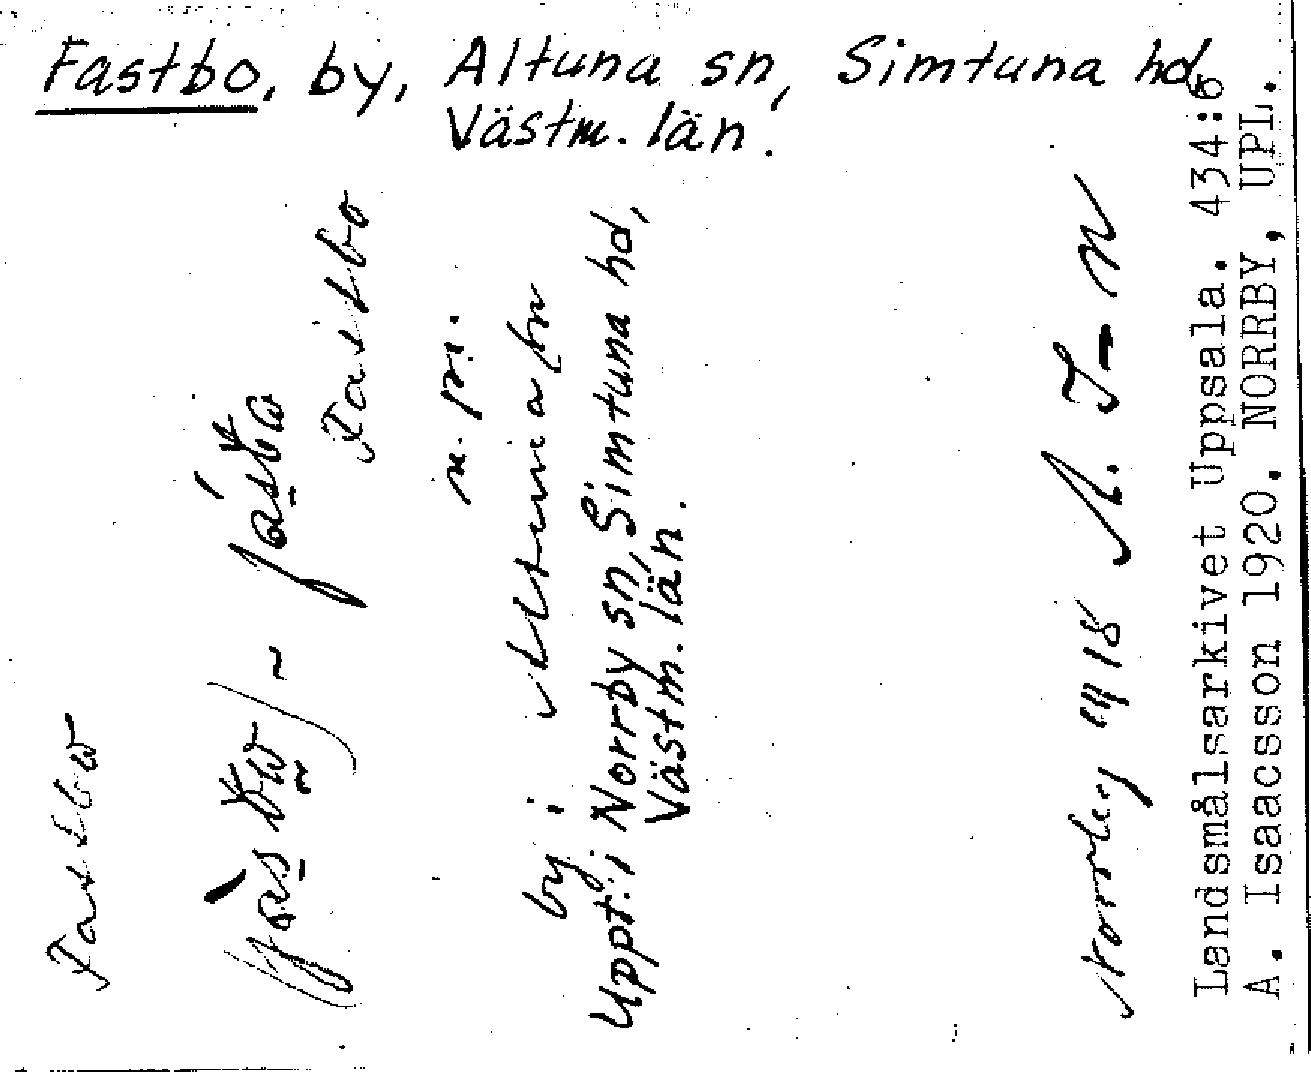 Fastbo, by, Altuna sn, Simtuna hd,
Västm. län.
Fastbo
fàstbω) ~ fásta
Fastbo
n. pr.
by i Altuna sn
Uppt. i Norrby sn, Simtuna hd,
Västm. län.
Norrby 18 A. I-n
Landsmålsarkivet Uppsala. 434:6
A. Isaacsson 1920. NORRBY, UPL.